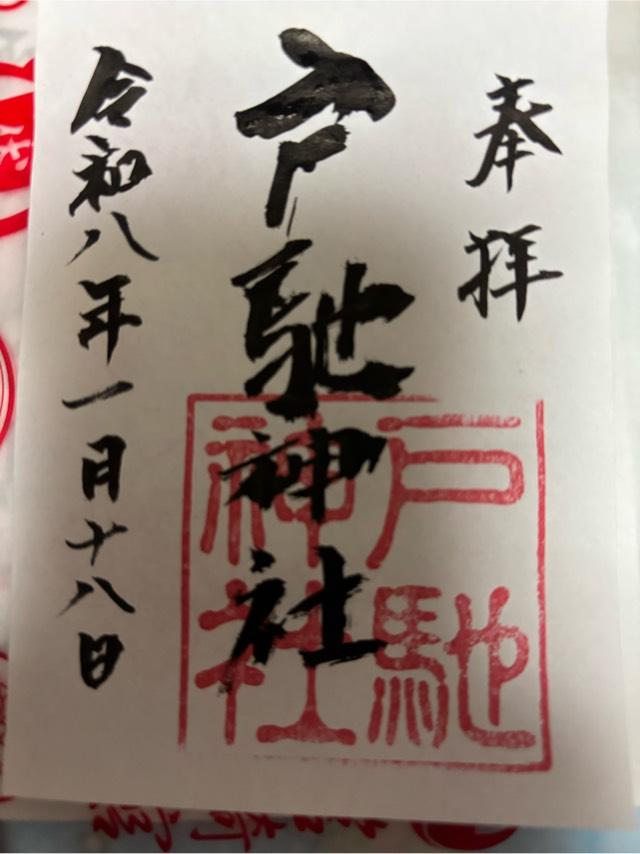 奉拝
戸馳神社
令和八年一月十八日
戸馳
神社